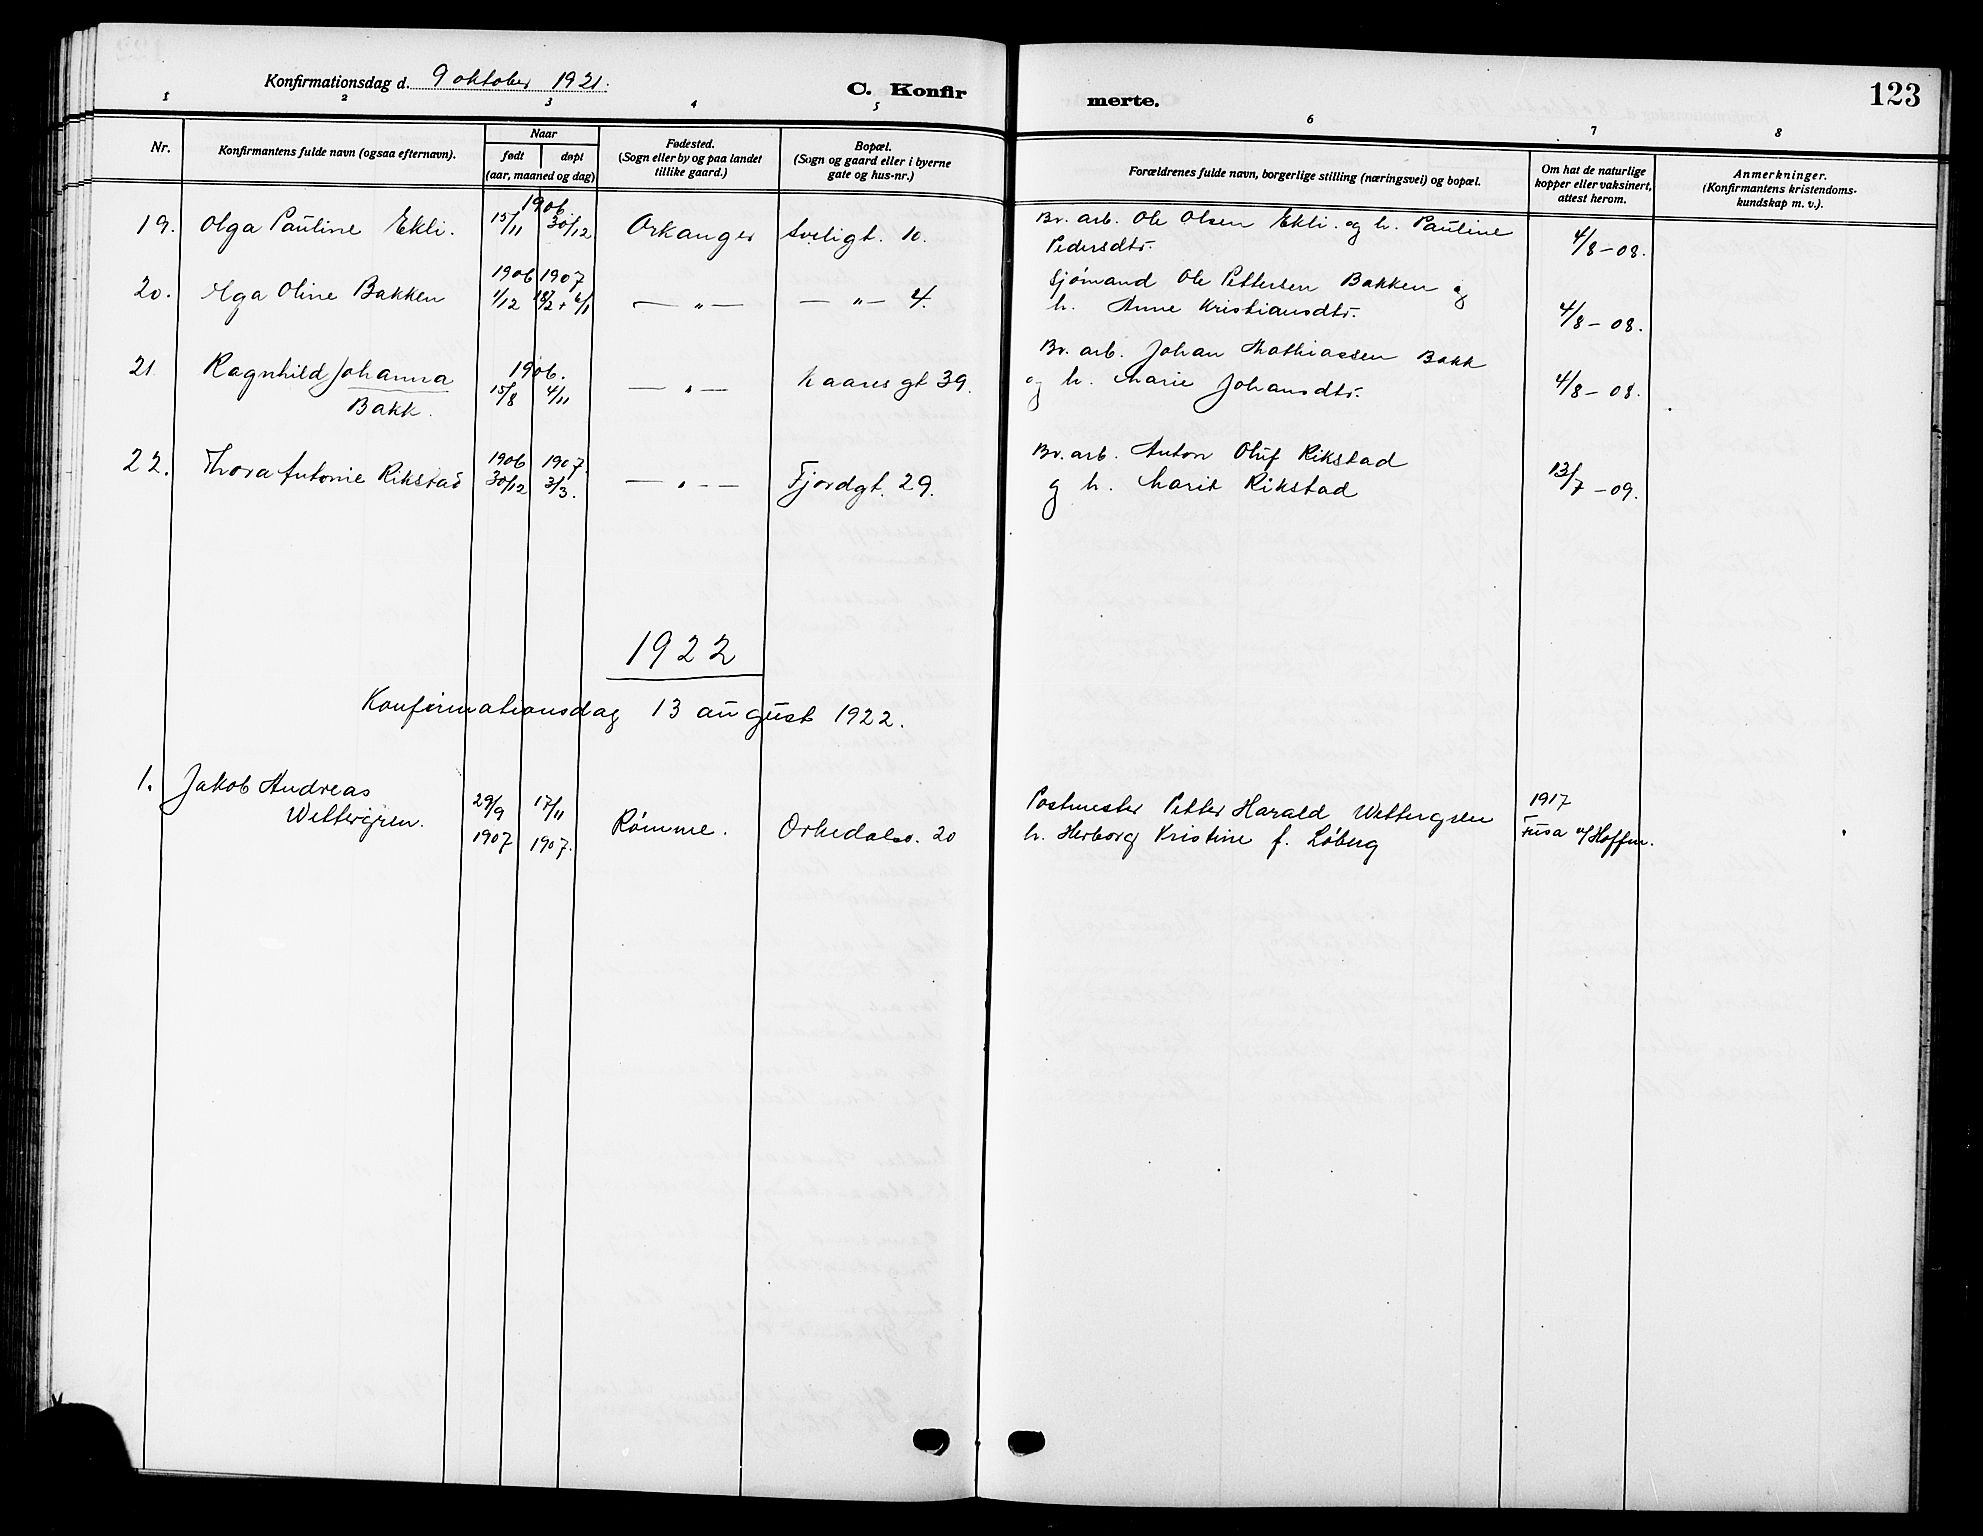 Konfirmationsdag d. 9 oktober 1921.
C. Konfir
merte.
123
1 2 3 4 5 6 7 8
Nr.
Konfirmantens fulde navn (ogsaa efternavn).
Naar
født døpt
(aar, maaned og dag)
Fødested.
(Sogn eller by og paa landet
tillike gaard.)
Bopæl.
(Sogn og gaard eller i byerne
gate og hus-nr.)
Forældrenes fulde navn, borgerlige stilling (næringsvei) og bopæl.
Om hat de naturlige
kopper eller vaksinert,
attest herom.
Anmerkninger.
(Konfirmantens kristendoms-
kundskap m. v.).
1906
19. Olga Pauline Ekli. 15/11 30/12 Orkanger 10. Br. arb. Ole Olsen Ekli. og h. Pauline
Pedersdtr. 4/8-08.
1906 1907
20. Olga Oline Bakken 1/12 18/2 + 6/1 — " — — " — 4. Sjømand Ole Pettersen Bakken og
h. Anne Kristiansdtr. 4/8-08.
21. Ragnhild Johanna 1906. Br. arb. Johan Mathiassen Bakk
Bakk. 15/8 4/11 — " — Kaaresgt 39. og h. Marie Johansdtr. 4/8-08.
1906 1907
22. Thora Antonie Rikstad 30/12 3/3. — " — Fjordgt. 29. Br. arb. Anton Oluf Rikstad
og h. Marit Rikstad 13/7-09.
1922
Konfirmationsdag 13 august 1922.
1. Jakob Andreas
Wettergren. 29/9 17/11 Postmester Petter Harald Wettergren 1917
1907 1907. Rømme. Orkedalsv. 20 h. Herborg Kristine f. Løberg Fusa v/ Hoffm.